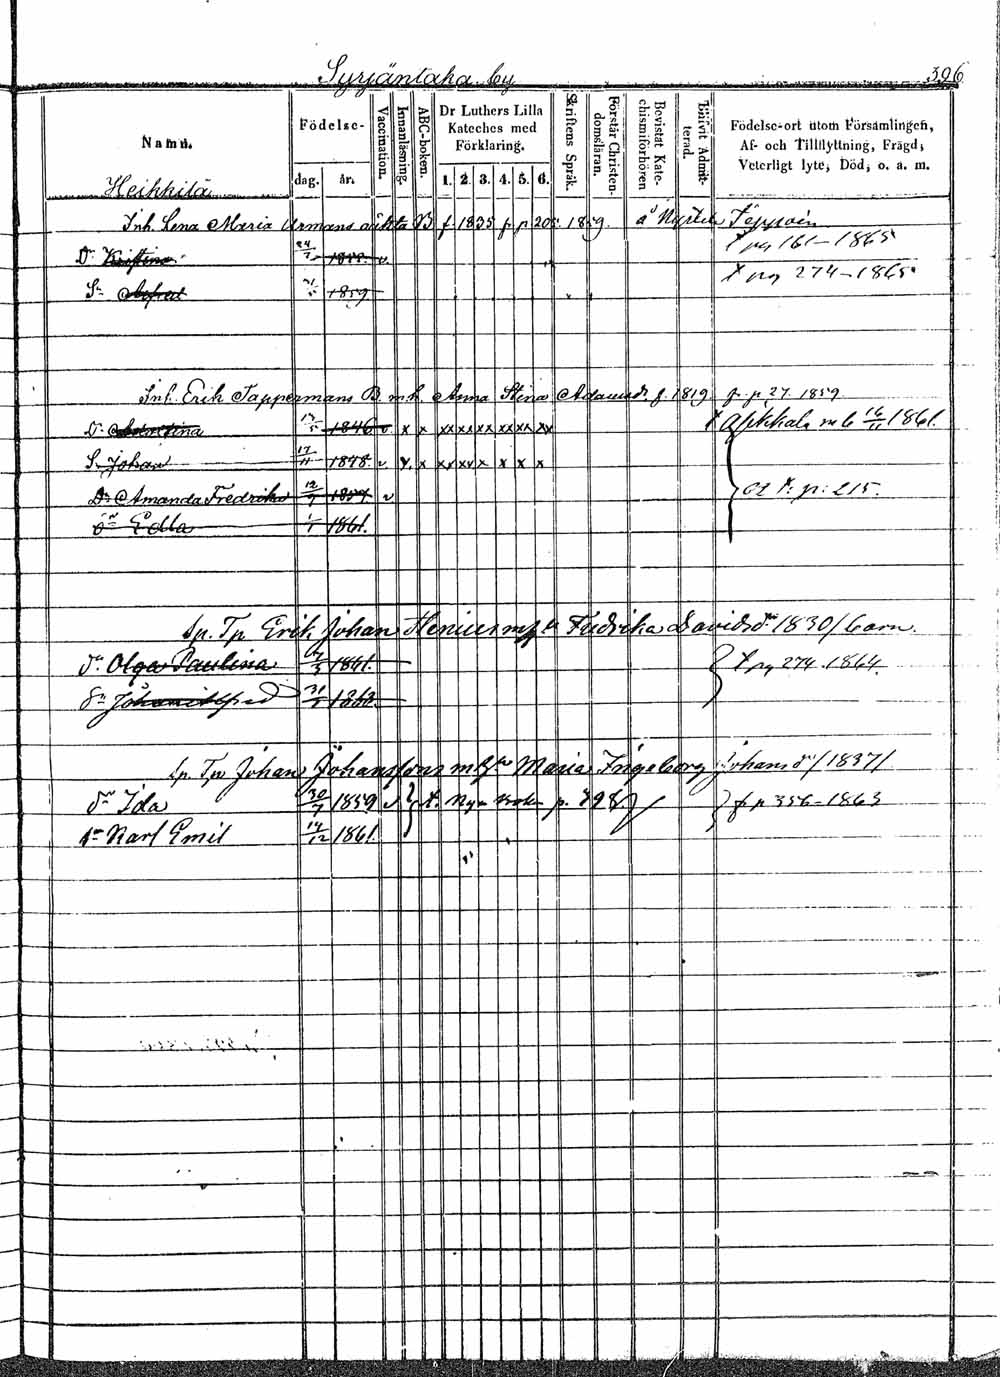 Syrjäntaka by
396
Namn.
Födelse-
dag. år.
Vaccination.
Innanläsning.
ABC-boken.
Dr Luthers Lilla
Kateches med
Förklaring.
1. 2. 3. 4. 5. 6.
Skriftens Språk.
Förstår Christen-
domsläran.
Bevistat Kate-
chismiförhören
Blifvit Admit-
terad.
Födelse-ort utom Församlingen,
Af- och Tillflyttning, Frägd,
Veterligt lyte, Död, o. a. m.
Heikkilä
Inh. Lena Maria Urmans oäkta B f. 1835 fr p. 205. 1859. å
pag 161-1865
Dr Kristina 24 1855. v
pag 274-1865
Sn 1859
Inh. Erik Tappermans B. m. h. Anna Stina Adamsdr f. 1819 fr. p. 27. 1859
Dr 17/5 1846 v x x xx xx xx xx xx xx
Asikkala m b 16/11 1861.
S. Johan 17/11 1848. v x. x xx xx x x x x
Dr Amanda Fredrika 12/9 1857 v
p: 215.
Dr Edla 1/1 1861.
Sp. Tp Erik Johan Henius m h u Fredrika Davidsdr 1830/ barn.
dr Olga Paulina 1861.
pag 274. 1864.
Sn Johan Alfred 31 1863.
Sp. Tp Johan Johanssons m h u Maria Ingeborg Johansdr/1837/
dr Ida 30/7 1859 v t. Nya boken p. 398
fr p 356-1863
sn Karl Emil 14/12 1861.